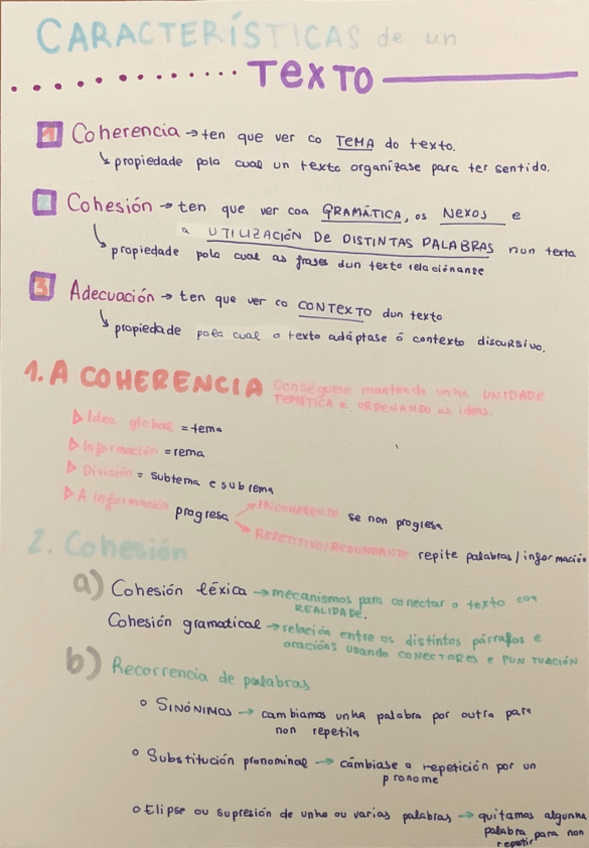 CARACTERÍSTICAS de un
TEXTO
1 Coherencia → ten que ver co TEMA do texto.
↳ propiedade pola cual un texto organízase para ter sentido.
2 Cohesión → ten que ver coa GRAMÁTICA, os NEXOS e
a UTILIZACIÓN DE DISTINTAS PALABRAS nun texto
↳ propiedade pola cual as frases dun texto relaciónanse
3 Adecuación → ten que ver co CONTEXTO dun texto
↳ propiedade pola cual o texto adáptase ó contexto discursivo.
1. A COHERENCIA Conséguese mantendo unha UNIDADE
TEMÁTICA e ORDENANDO as ideas.
▷ Idea global = tema
▷ Información = rema
▷ División = subtema e subrema
▷ A información progresa → INCOHERENTE se non progresa
→ REPETITIVO/REDUNDANTE repite palabras/información
2. Cohesión
a) Cohesión léxica → mecanismos para conectar o texto coa
REALIDADE.
Cohesión gramatical → relación entre os distintos párrafos e
oracións usando CONECTORES e PUNTUACIÓN
b) Recorrencia de palabras
° SINÓNIMOS → cambiamos unha palabra por outra para
non repetila
° Substitución pronominal → cámbiase a repetición por un
pronome
° Elipse ou supresión de unha ou varias palabras → quitamos algunha
palabra para non
repetir